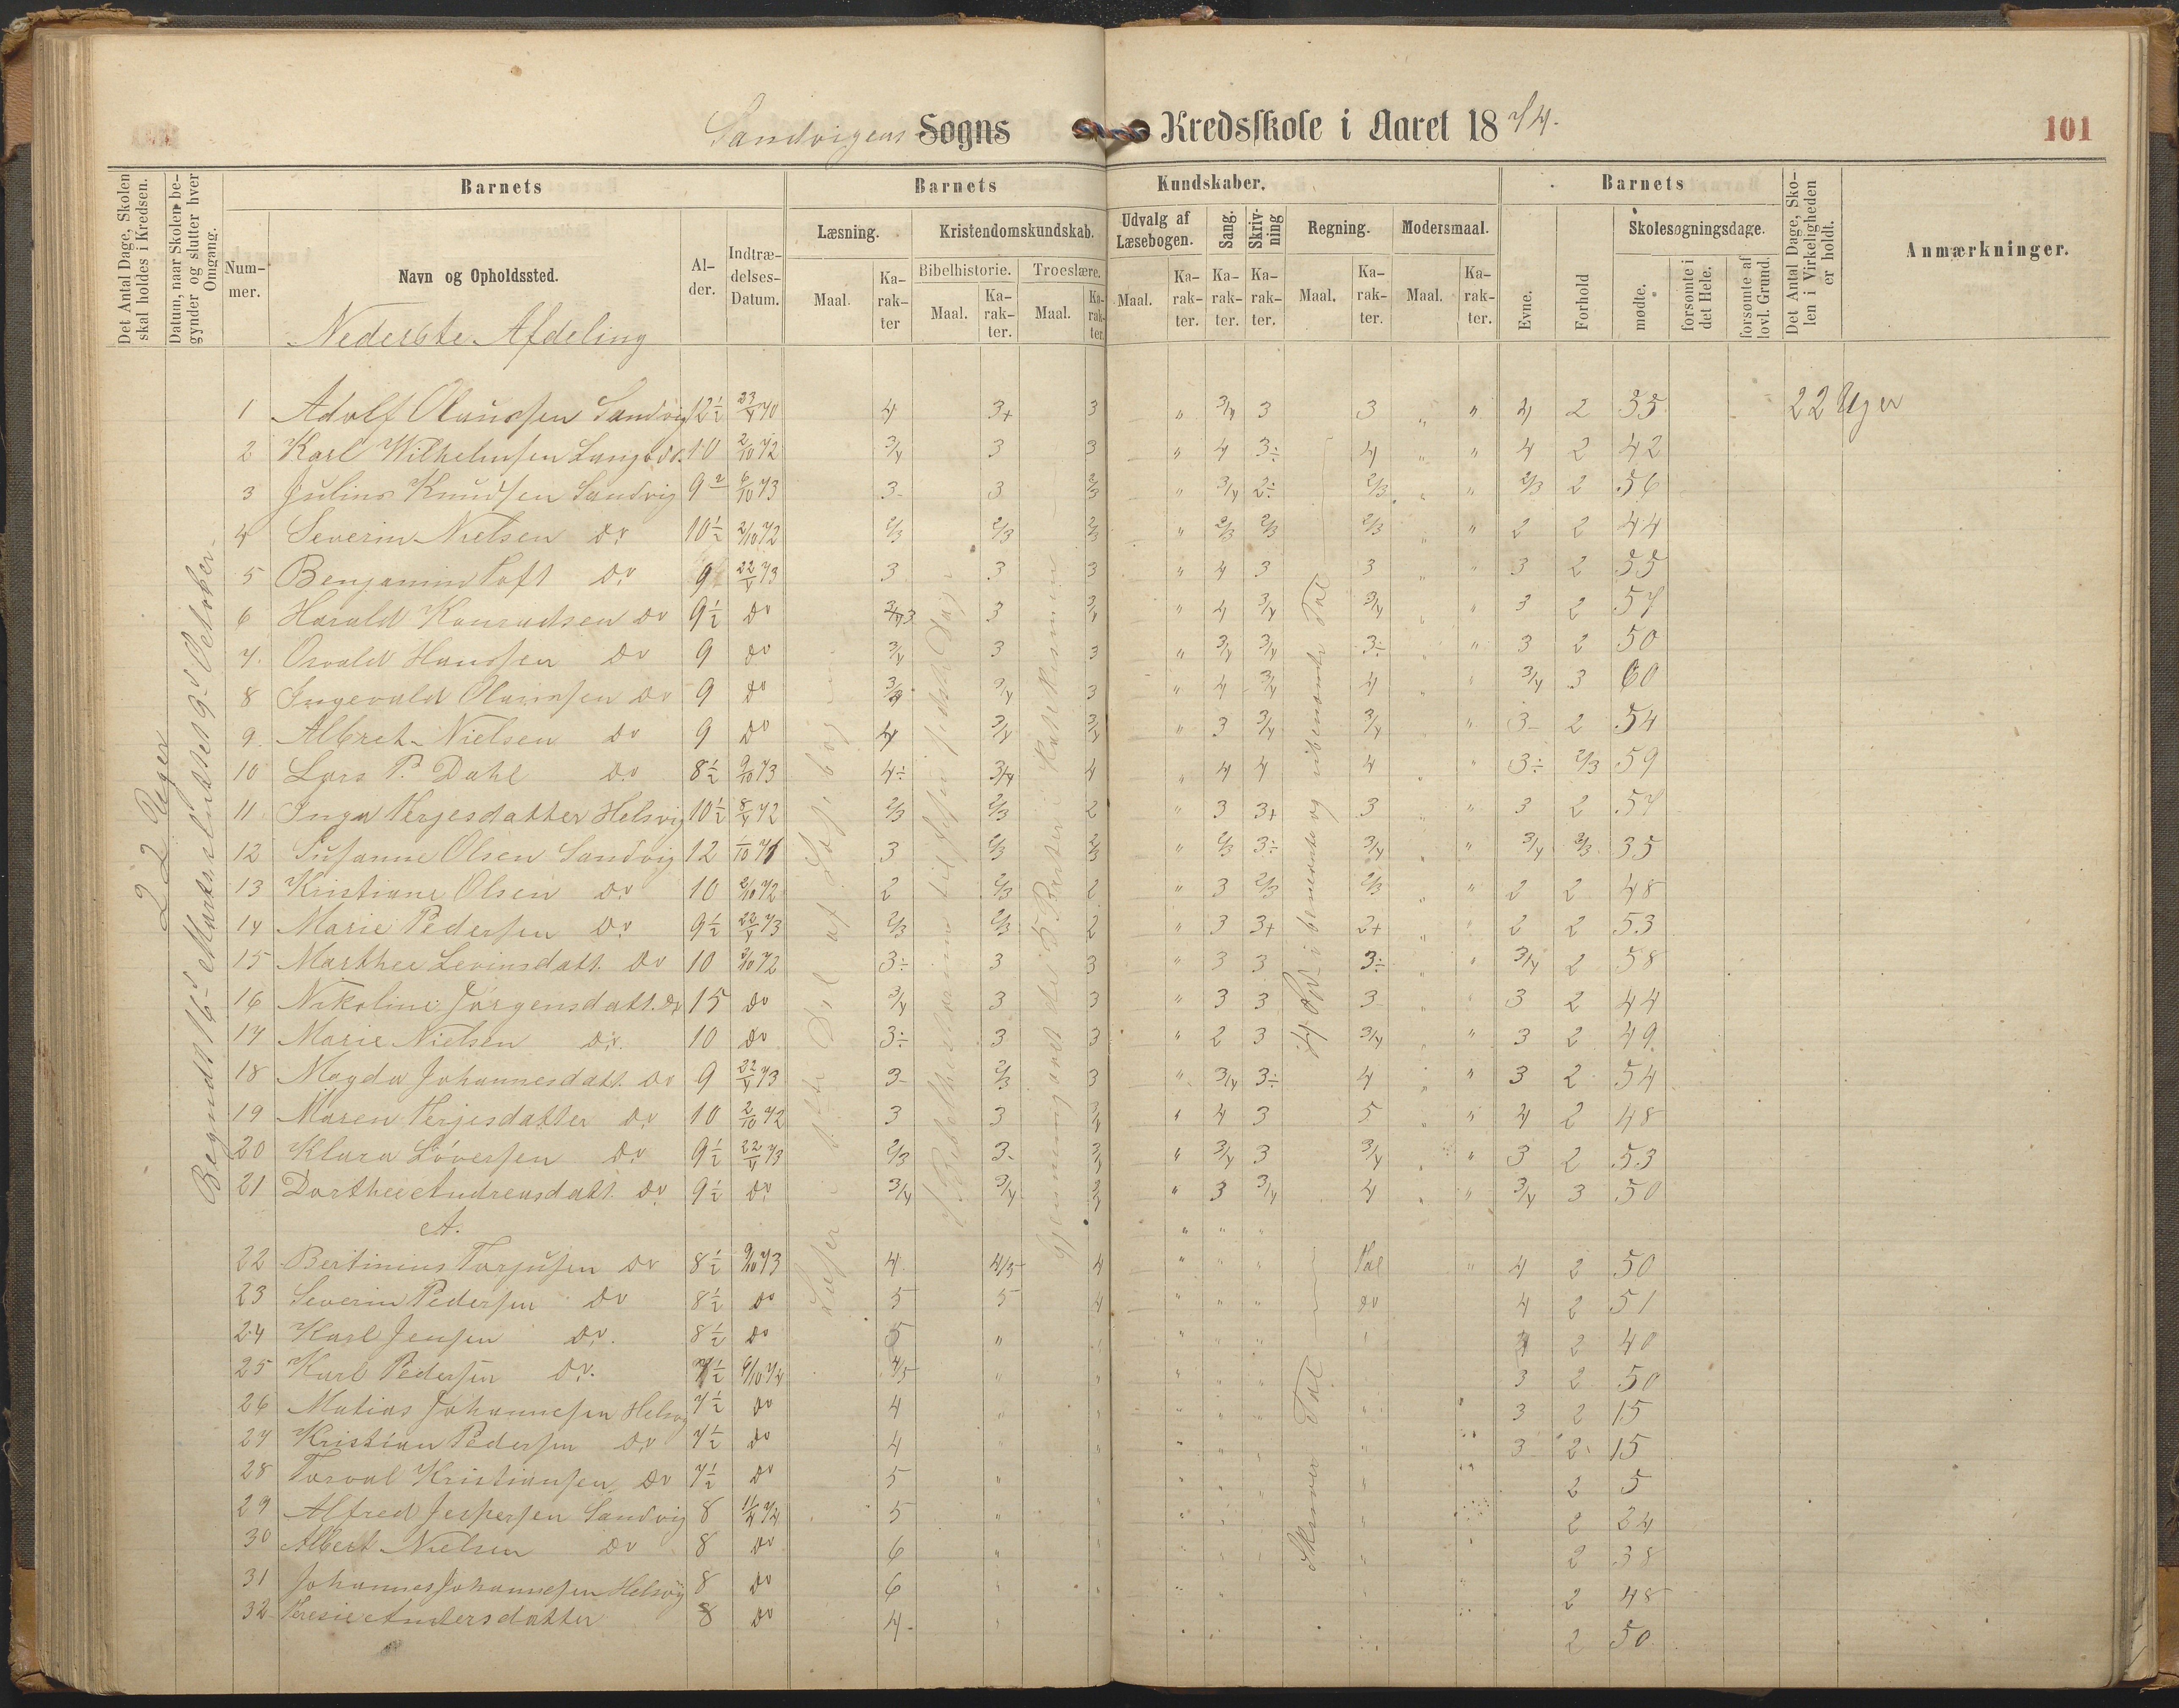 Sandvigens Sogns Kredsskole i Aaret 1874.
101
Det Antal Dage, Skolen skal holdes i Kredsen.
Datum, naar Skolen begynder og slutter hver Omgang.
Barnets
Barnets Kundskaber.
Barnets
Nummer.
Navn og Opholdssted.
Alder.
Indtrædelses-Datum.
Læsning.
Kristendomskundskab.
Udvalg af Læsebogen.
Sang.
Skrivning
Regning.
Modersmaal.
Evne.
Forhold
Skolesøgningsdage.
Det Antal Dage, Skolen i Virkeligheden er holdt.
Anmærkninger.
Bibelhistorie.
Troeslære.
Maal. Karakter
Maal. Karakter.
Maal. Karakter.
Maal. Karakter.
Karakter.
Karakter.
Maal. Karakter.
Maal. Karakter.
mødte.
forsømte i det Hele.
forsømte af lovl. Grund.
Nederste Afdeling
22 Uger
Begyndt 16de Marts sluttet 9de October
1 Adolf Olaussen Sandvig 12½ 23/4 70 4 3+ 3 " 3/4 3 3 " " 4 2 55 22 Uger
2 Karl Wilhelmsen 10 2/10 72 3/4 3 3 " 4 3÷ 4 " " 4 2 42
3 Julius Knudsen Sandvig 9 6/10 73 3- 3 2/3 " 3/4 2÷ 2/3 " " 2/3 2 56
4 Severin Nielsen do 10½ 2/10 72 2/3 2/3 2/3 " 2/3 2/3 2/3 " " 2 2 44
5 Benjamin Toft do 9 22/4 73 3 3 3 " 4 3 3 " " 3 2 55
6 Harald Konradsen do 9½ do 3 3 3/4 " 4 3/4 3/4 " " 3 2 57
7. Osvald Hanssen do 9 do 3/4 3 3 " 3/4 3/4 3÷ " " 3 2 50
8 Ingevald Olaussen do 9 do 3/4 3/4 3 " 4 3/4 4 " " 3/4 3 60
9. Albret Nielsen do 9 do 4 3/4 3/4 " 3 3/4 3/4 " " 3- 2 54
10 Lars P. Dahl do 8½ 9/10 73 4÷ 3/4 4 " 4 4 4 " " 3÷ 2/3 59
11 Inga Terjesdatter Helsvig 10½ 8/4 72 2/3 2/3 2 " 3 3+ 3 " " 3 2 57
12 Susanne Olsen Sandvig 12 1/10 71 3 2/3 2/3 " 2/3 3÷ 3/4 " " 3/4 2/3 35
13 Kristiane Olsen do 10 2/10 72 2 2/3 2 " 3 2/3 2/3 " " 2 2 48
14 Marie Pedersen do 9½ 22/4 73 2/3 2/3 2 " 3 3+ 2+ " " 2 2 53
15 Marthea Levinsdatt. do 10 2/10 72 3÷ 3 3 " 3 3 3÷ " " 3/4 2 58
16 Nikoline Jörgensdatt. do 15 do 3/4 3 3 " 3 3 3 " " 3 2 44
17 Marie Nielsen do. 10 do 3÷ 3 3 " 2 3 3/4 " " 3 2 49
18 Magda Johannesdatt. do 9 22/4 73 3- 2/3 3 " 3/4 3÷ 4 " " 3 2 54
19 Maren Terjesdatter do 10 2/10 72 3 3 3/4 " 4 3 5 " " 4 2 48
20 Klara Löversen do 9½ 22/4 73 2/3 3- 3/4 " 3/4 3 3/4 " " 3 2 53
21 Dorthea Andreasdatt. do 9½ do 3/4 3/4 3/4 " 3 3/4 4 " " 3/4 3 50
A.
22 Bertinius Torjusen do 8½ 9/10 73 4 4/5 4 " " " Tal " 4 2 50
23 Severin Pedersen do 8½ do 5 5 4 " " " do 4 2 51
24 Karl Jensen do. 8½ do 5 " 4 2 40
25 Karl Pedersen do. 7½ 6/10 74 4/5 " 3 2 50
26 Matias Johannesen Helsvig 7½ do 4 " 3 2 15
27 Kristian Pedersen do 7½ do 4 " 3 2 15
28 Torval Kristiansen do 7½ do 5 " 2 5
29 Alfred Jespersen Sandvig 8 11/4 74 5 " 2 24
30 Albert Nielsen do 8 do 6 " 2 38
31 Johannes Johannesen Helsvig 8 do 6 " 2 48
32 Teresie Andersdatter 8 do 4- " 2 50
Læser i 1ste Del af Læsebogen
I Bibelhistorie til
Gjennemgaaet de 5 Parter i Katekismen
4 Sp. i benævnte og ubenævnte Tal
Skriver Tal